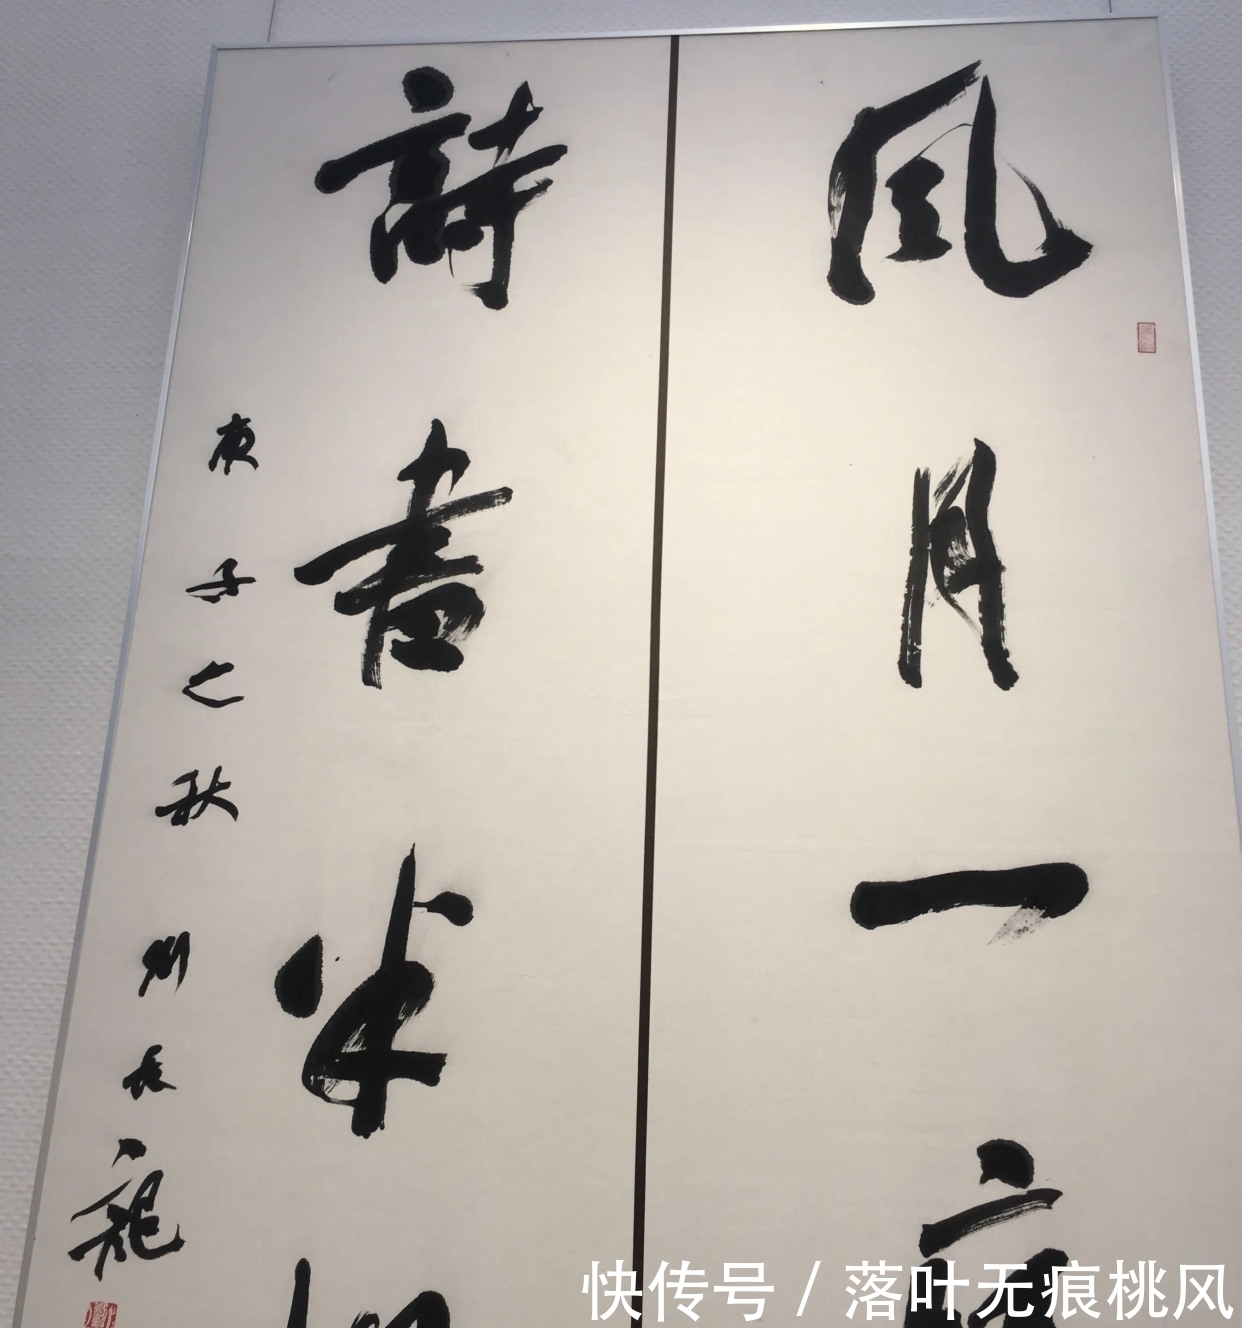 風月一
詩書半
庚子之秋 劉長龍
快传号 / 落叶无痕桃风